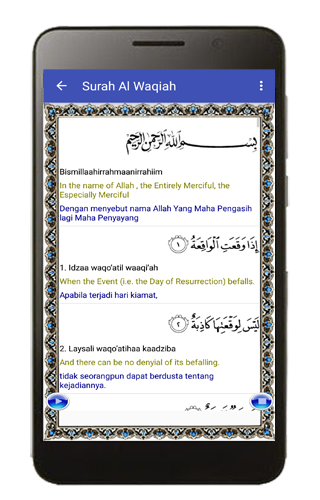 Surah Al Waqiah
بِسْمِ اللَّهِ الرَّحْمَٰنِ الرَّحِيمِ
Bismillaahirrahmaanirrahiim
In the name of Allah , the Entirely Merciful, the
Especially Merciful
Dengan menyebut nama Allah Yang Maha Pengasih
lagi Maha Penyayang
إِذَا وَقَعَتِ الْوَاقِعَةُ ١
1. Idzaa waqo'atil waaqi'ah
When the Event (i.e. the Day of Resurrection) befalls.
Apabila terjadi hari kiamat,
لَيْسَ لِوَقْعَتِهَا كَاذِبَةٌ ٢
2. Laysali waqo'atihaa kaadziba
And there can be no denyial of its befalling.
tidak seorangpun dapat berdusta tentang
kejadiannya.